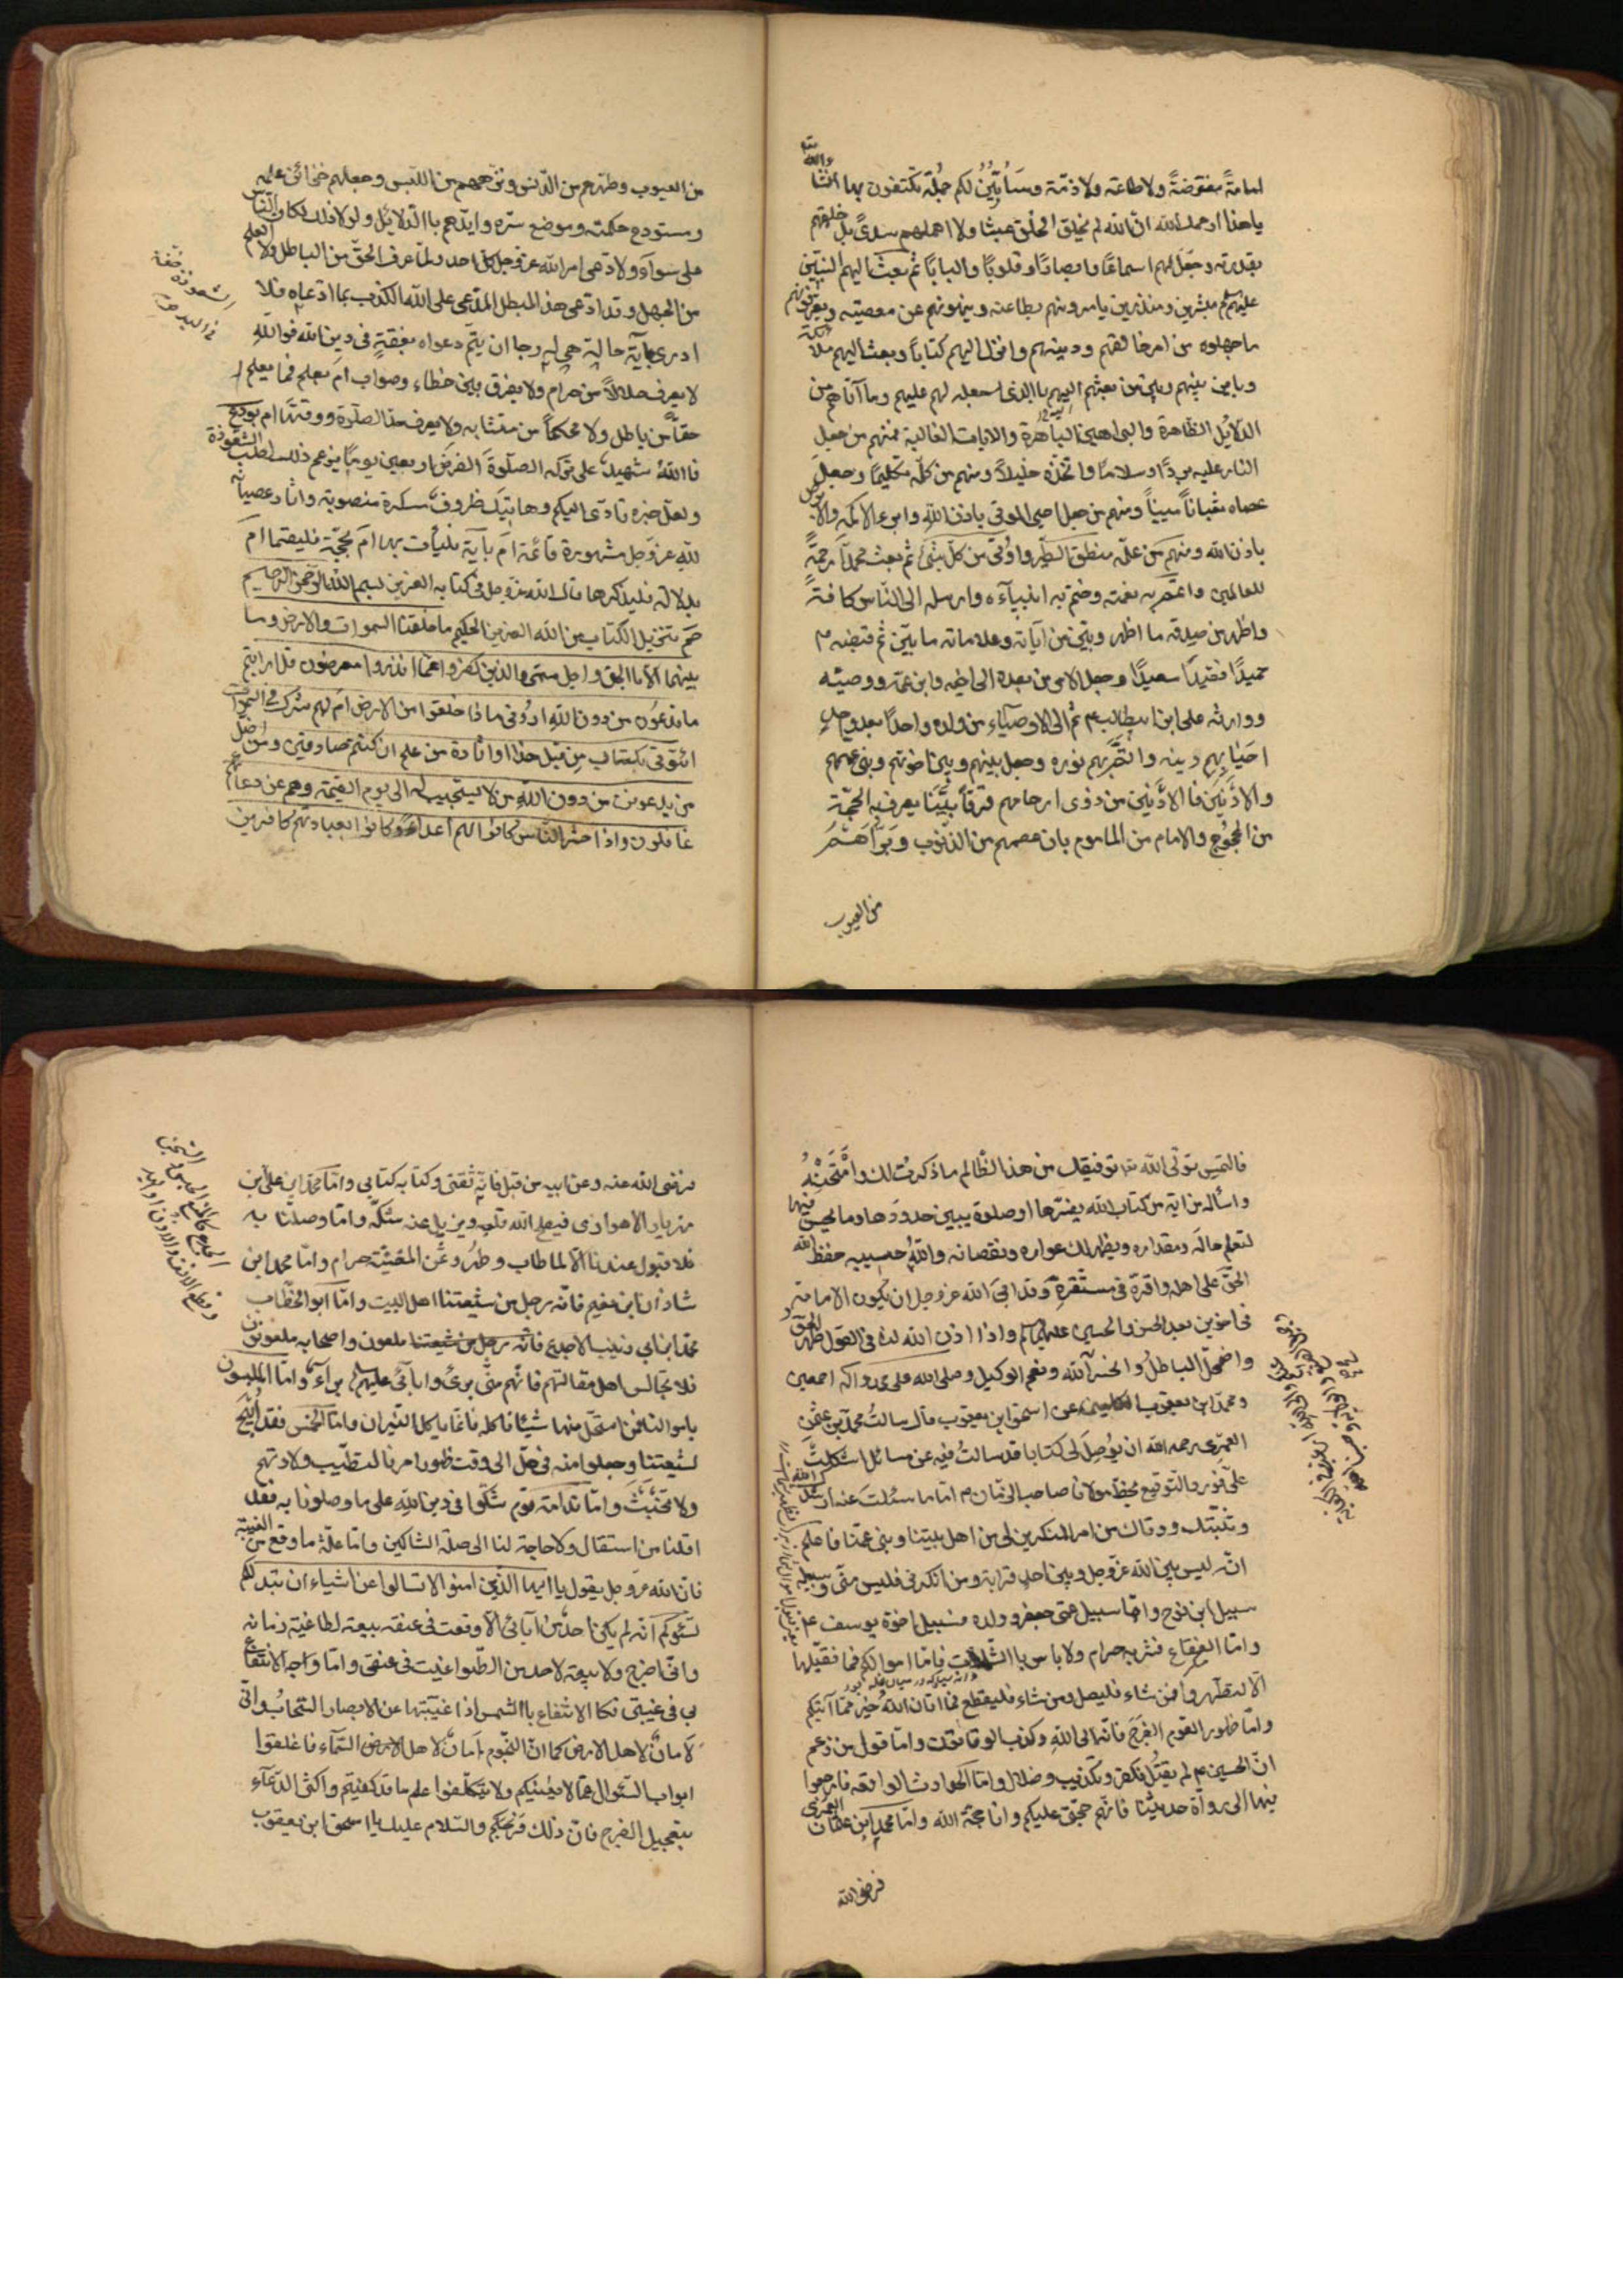 امامةً مفترضةً ولا طاعة ولا ذمّة وسَاُبَيِّنُ لكم جُملة تكتفون بها انشاء الله تعالى
يا هذا ارحمك الله انّ الله لم يخلق الخلق عبثا ولا اهملهم سدىً بل خلقهم
بقدرته وجعَل لهم اسماعًا وابصارًا وقلوبًا والبابًا ثم بعث اليهم النبيّين
عليهم مبشّرين ومنذرين يامرونهم بطاعته وينهونهم عن معصيته ويعرّفونهم
ما جهلوه من امر خالقهم ودينهم وانزل اليهم كتابًا وبعث اليهم ملائكة
وباين بينهم وبين من بعثهم اليهم باالذى جعله لهم عليهم وما آتاهم من
الدّلايُل الظاهرة والبراهين الباهرة والايات الغالبة فمنهم من جعل
النار عليه بردًا وسلامًا واتّخذه خليلاً ومنهم من كلّمه تكليمًا وجعل
عصاه ثعبانًا مبينًا ومنهم من جعل احيى الموتى باذن الله وابرء الاكمه والابرص
باذن الله ومنهم من علّمه منطق الطّير واوُتى من كلّ شئ ثم بعث محمدًا رحمةً
للعالمين واتمّم به نعمته وختم به انبيآءه وارسله الى النّاس كافةً
واظهر من صدقه ما اظهر وبيّن من آياته وعلاماته ما بيّن ثم قبضه
حميدًا فقيدًا سعيدًا وجعل الامر من بعده الى اخيه وابن عمّه ووصيّه
ووارثه على ابن ابيطالب ع ثم الى الاوصيآء من ولده واحدًا بعد واحدٍ
احيٰا بهم دينه واتمّ بهم نوره وجعل بينهم وبين اخوتهم وبنى عمهم
والادنَين فاالادنَين من ذوى ارحامهم فرقًا بيّنًا يعرف به الحجّة
من المحجوج والامام من الماموم بان عصمهم من الذّنوب وبَرّاَهُمْ
من العيوب
من العيوب وطهّرهم من الدّنس ونزّههم من اللبس وجعلهم خزائن علمه
ومستودع حكمته وموضع سرّه وايّدهم باالدّلائل ولولا ذلك لكان النّاس
على سوآءٍ ولادّعى امر الله عزّ وجل كل احد ولما عرف الحقّ من الباطل ولا العلم
من الجهل وقد ادّعى هذا المبطل المدّعى على الله الكذب بما ادّعاه فلا
ادرى باَيّة حالة هى له رجا ان يتمّ دعواه بفقهٍ فى دين الله فوالله
لا يعرف حلالاً من حرام ولا يفرق بين خطاء وصواب ام بعلم فما يعلم
حقًا من باطل ولا محكمًا من متشابه ولا يعرف حد الصلوٰة ووقتها ام بورع
فاالله شهيدٌ على تركه الصلوٰة الفرض اربعين يومًا يزعم ذلك لطلب الشّعوذة
ولعل خبره تادّى اليكم وهاتيك ظروف مسكره منصوبة وآثار عصيانه
لله عزّ وجل مشهورة قائمة ام بآية فليأت بها ام بحجّة فليقمها ام
بدلالة فليذكرها قال الله عزّ وجل فى كتابه العزيز بسم الله الرّحمن الرّحيم
حم تنزيل الكتاب من الله العزيز الحكيم ما خلقنا السموات والارض وما
بينهما الا باالحق واجل مسمى والذين كفروا عمّا انذروا معرضون قل ارايتم
ما تدعون من دون الله ارونى ماذا خلقوا من الارض ام لهم شرك فى السموات
ائتونى بكتاب من قبل هذا او اثارة من علم ان كنتم صادقين ومن اضلّ
ممن يدعو من دون الله من لا يستجيب له الى يوم القيٰمة وهم عن دعائهم
غافلون واذا حشر النّاس كانوا لهم اعداءً وكانوا بعبادتهم كافرين
الشعوذة خفة
فى اليد
فالتمس تولّى الله تع توفيقك من هذا الظّالم ما ذكرتُ لك وامْتَحِنْهُ
واسأله من اية من كتاب الله يفسّرها او صلوة يبين حدودها وما يجب فيها
لتعلم حاله ومقداره ويظهر لك عواره ونقصانه والله حسيبه حفظ الله
الحقّ على اهله واقرّه فى مستقرّه وقد ابى الله عزّ وجل ان يكون الامامة
فى اخوين بعد الحسن والحسين عليهم واذا اذن الله لنا فى القول ظهر الحقّ
واضمحلّ الباطلُ وانحسر الله ونعم الوكيل وصلى الله على محمد واله اجمعين
ومحمد ابن يعقوب الكلينى عن اسحق ابن يعقوب قال سالتُ محمّد بن عثمن
العمرى رحمه الله ان يُوصل لى كتابا قد سالتُ فيه عن مسائل اشكلت
علىّ فورد التوقيع بخط مولانا صاحب الزّمان امّا ما سئلت عنه ارشدك الله
وثبّتك ووقاك من امر المنكرين لى من اهل بيتنا وبنى عمّنا فاعلم
انّه ليس بين الله عزّ وجل وبين احدٍ قرابة ومن انكرنى فليس منّى وسبيله
سبيل ابن نوح وامّا سبيل عمّى جعفر وولده فسبيل اخوة يوسف ع
وامّا الفقاع فشربه حرام ولا باس باالشّلماب فامّا اموالكم فما نقبلها
الّا لتطهّروا فمن شاء فليصل ومن شاء فليقطع فما اتان الله خير ممّا آتيكم
وامّا ظهور القوم الفرج فانّه الى الله وكذب الوقّاتون وامّا قول من زعم
انّ الحسين ع لم يقتل فكفر وتكذيب وضلال وامّا الحوادث الواقعة فارجعوا
فيها الى رواة حديثنا فانّهم حجتى عليكم وانا حجّة الله وامّا محمد ابن عثمان العمرى
فرضى الله
فرضى الله عنه وعن ابيه من قبل فانّه ثقتى وكتابه كتابى وامّا محمد ابن على ابن
مهزيار الاهوازى فيصلح الله قلبه ويزيل عنه شكّه وامّا وصلتنا به
فلا قبول عندنا الّا لما طاب وطهُر وثمن المغنّية حرام وامّا محمد ابن
شاذان ابن نعيم فانّه رجل من شيعتنا اهل البيت وامّا ابو الخطّاب
محمّد ابن ابى زينب الاجدع فانّه رجل من شيعتنا ملعون واصحابه ملعونون
فلا تجالس اهل مقالتهم فانّهم منّى برئ وابآئى عليهم برآء وامّا المتلبسون
باموالنا فمن استحلّ منها شيئًا فاكله فانّما ياكل النّيران وامّا الخمس فقد اُبيح
لشيعتنا وجعلوا منه فى حلّ الى وقت ظهور امرنا لتطيب ولادتهم
ولا تخبُث وامّا ندامة قوم شكّوا فى دين الله على ما وصلونا به فقد
اقلنا من استقال ولا حاجة لنا الى صلة الشاكين وامّا علّة ما وقع من الغيبة
فانّ الله عزّ وجل يقول يا ايها الذين امنوا لا تسالوا عن اشياء ان تبد لكم
تسؤكم انّه لم يكن احد من آبائى الّا وقعت فى عنقه بيعة لطاغية زمانه
وانّى اخرج ولا بيعة لاحد من الطّواغيت فى عنقى وامّا وجه الانتفاع
بى فى غيبتى فكا الانتفاع باالشمس اذا غيّبتها عن الابصار السّحاب وانّى
لامانٌ لاهل الارض كما انّ النّجوم اَمانٌ لاهل السّمآء فاغلقوا
ابواب السّئوال عمّا لا يعنيكم ولا تتكلّفوا علم ما قد كفيتم واكثروا الدّعآء
بتعجيل الفرج فانّ ذلك فرجكم والسّلام عليك يا اسحق ابن يعقوب